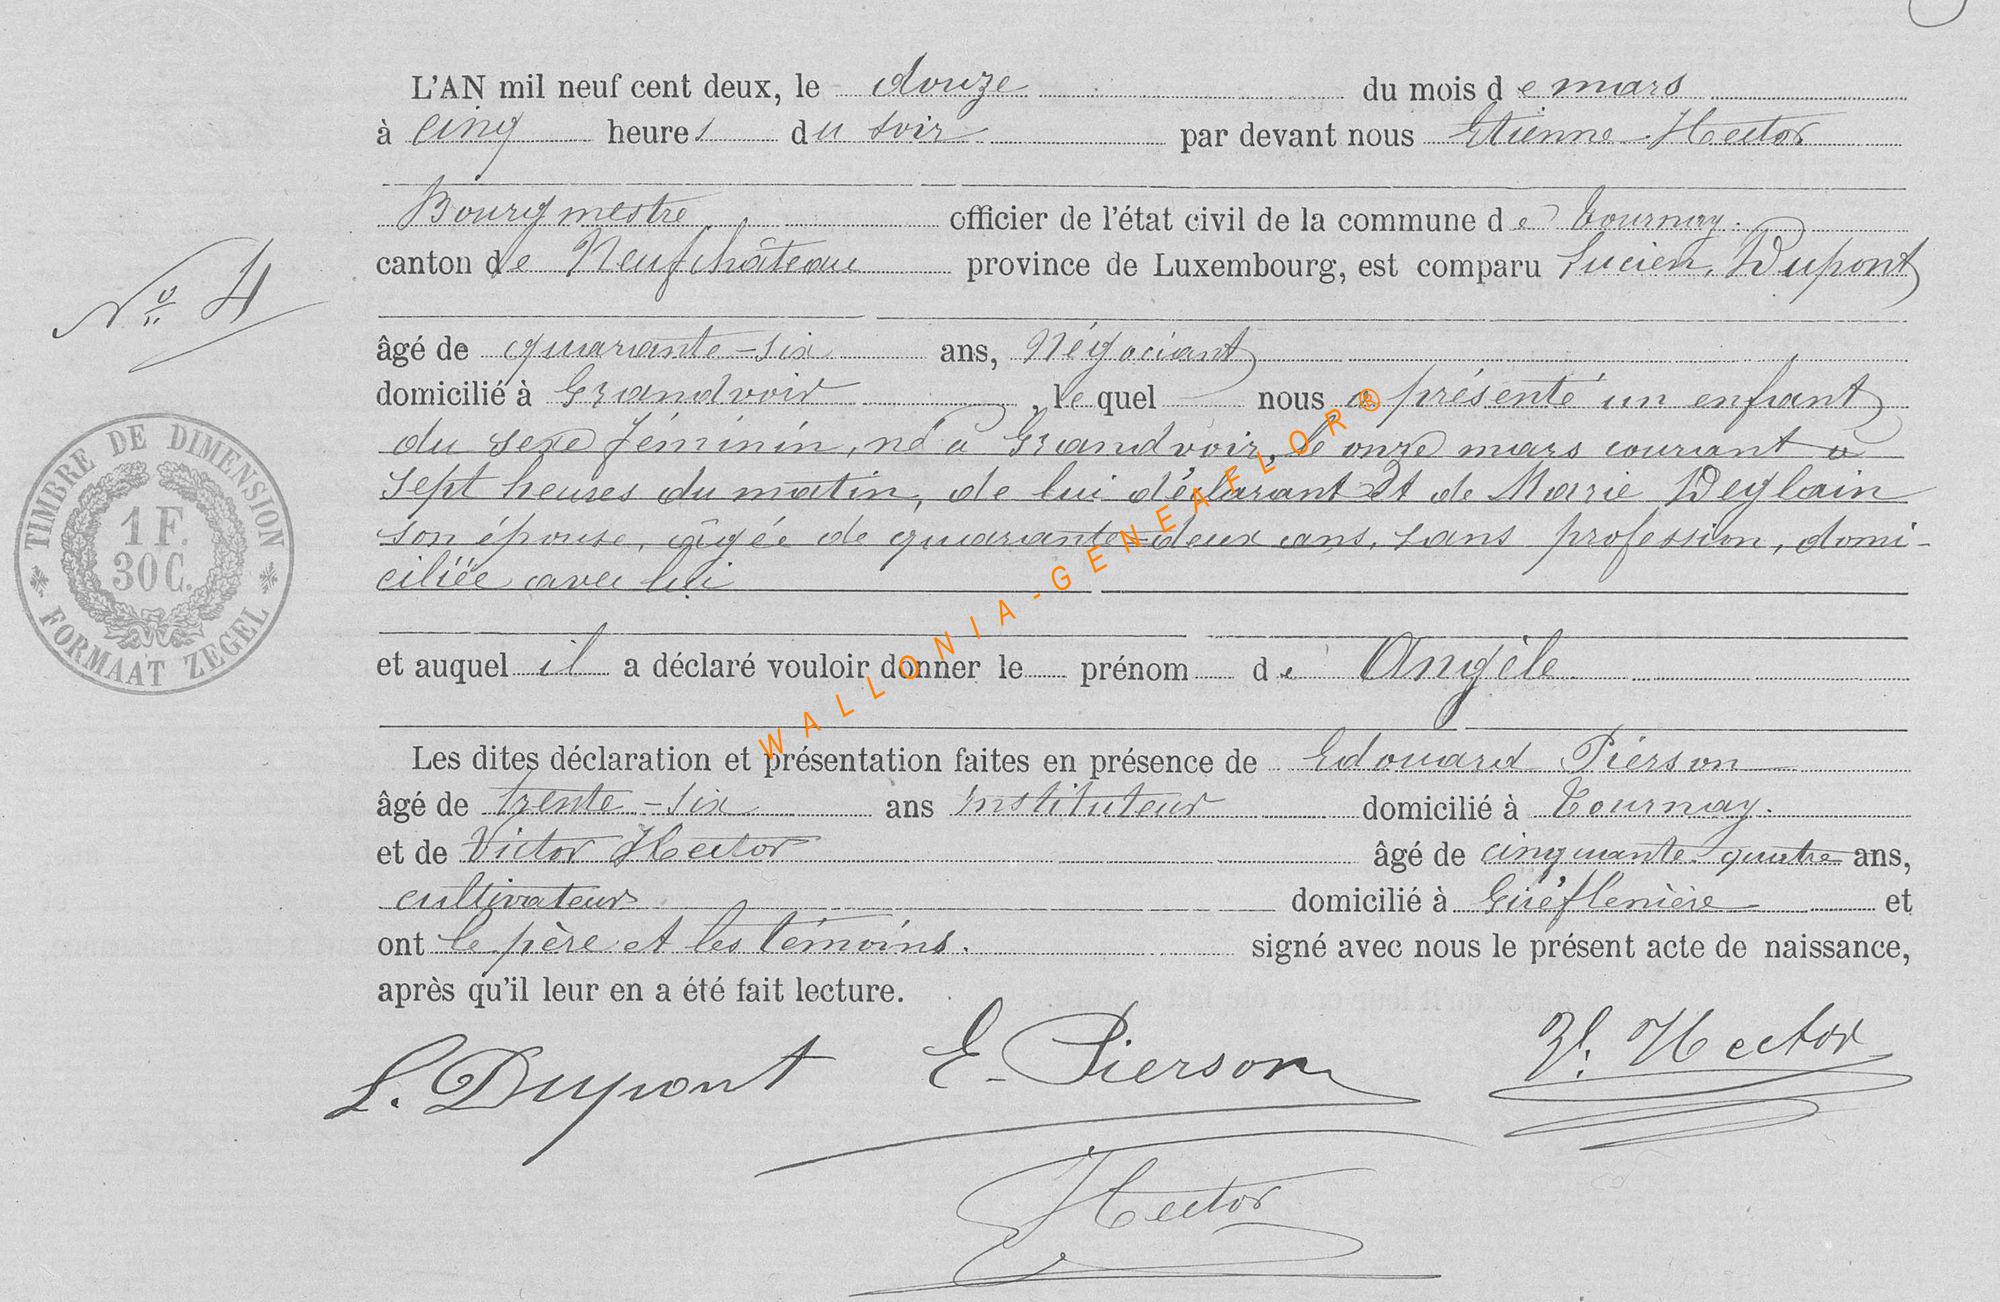 L'AN mil neuf cent deux, le douze du mois de mars
à cinq heures du soir par devant nous Etienne Hector
Bourgmestre officier de l'état civil de la commune de Tournay.
canton de Neufchâteau province de Luxembourg, est comparu Lucien Dupont
Nº 4
âgé de quarante-six ans, Négociant
domicilié à Grandvoir, le quel nous a présenté un enfant
du sexe féminin, né à Grandvoir, le onze mars courant à
sept heures du matin, de lui déclarant et de Marie Deglain
son épouse, âgée de quarante-deux ans, sans profession, domi-
ciliée avec lui
TIMBRE DE DIMENSION
1 F.
30 C.
FORMAAT ZEGEL
et auquel il a déclaré vouloir donner le prénom de Angèle
Les dites déclaration et présentation faites en présence de Edouard Pierson
âgé de trente-six ans instituteur domicilié à Tournay.
et de Victor Hector âgé de cinquante-quatre ans,
cultivateur domicilié à et
ont le père et les témoins. signé avec nous le présent acte de naissance,
après qu'il leur en a été fait lecture.
L. Dupont E. Pierson V. Hector
E Hector
WALLONIA-GENEAFLOR®